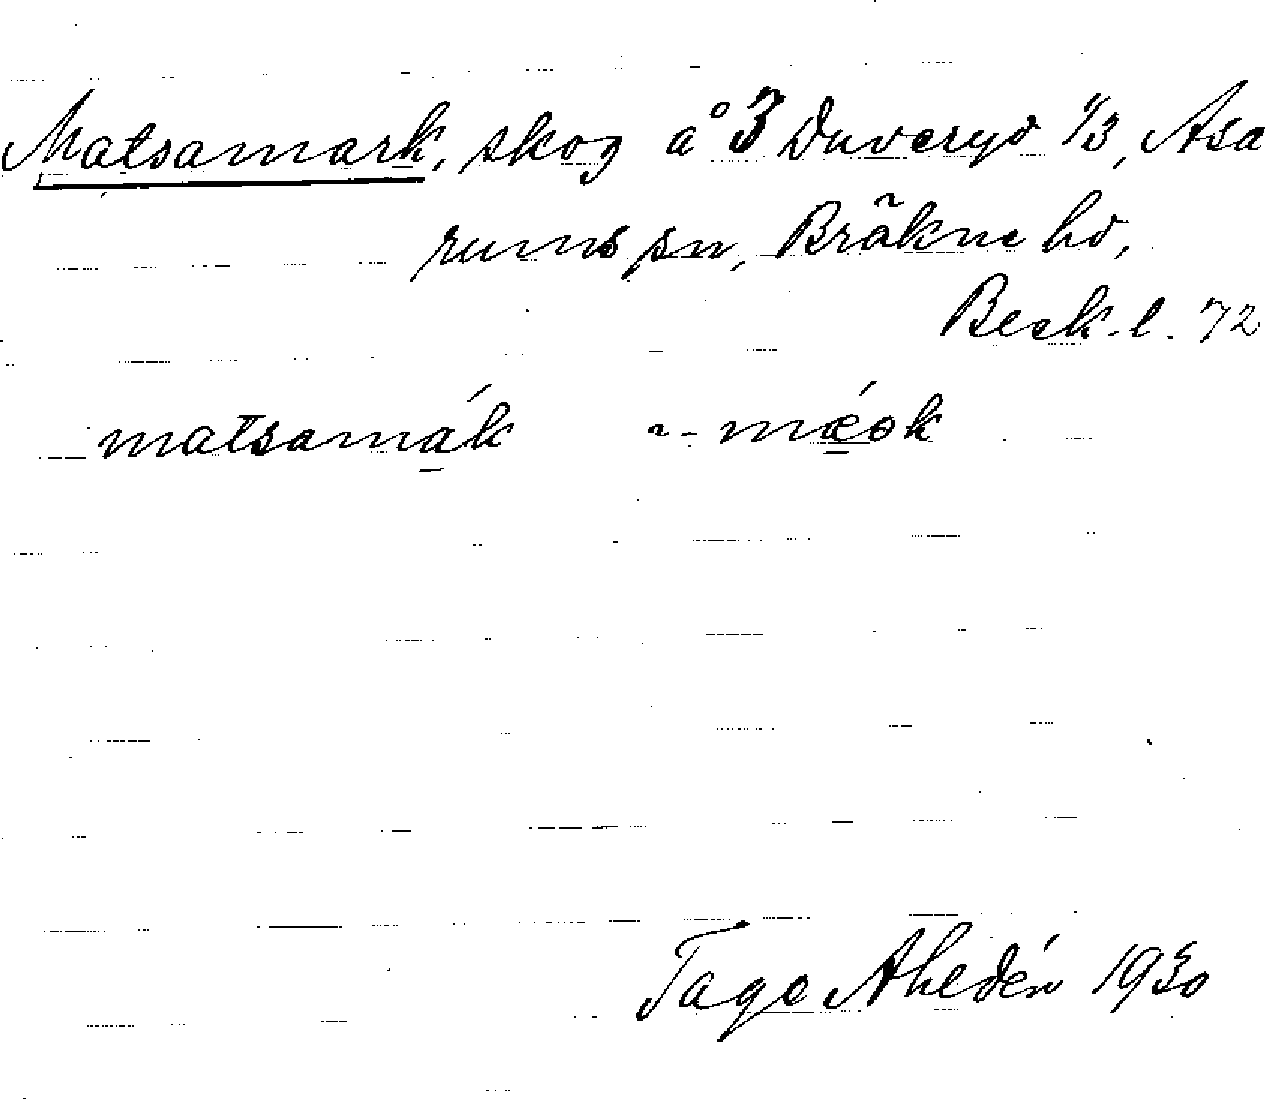 Matsamark, skog å 3 Duveryd 1/3, Asa
rums sn, Bräkne hd,
Beck. l. 72
matsamák ~- méok
Tage Ahldén 1930